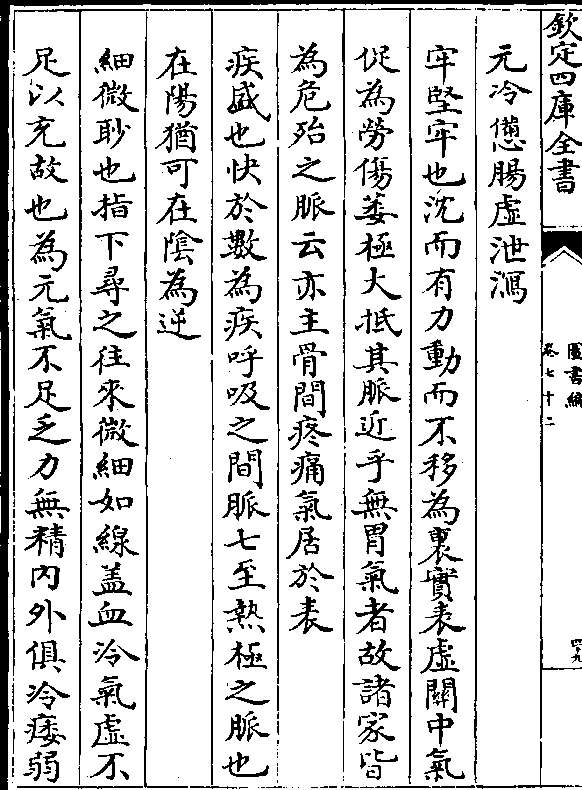 欽定四庫全書
圖書編
卷七十二
四十九
元冷憊腸虛泄瀉
牢堅牢也沈而有力動而不移為裏實表虛關中氣
促為勞傷萎極大抵其脈近乎無胃氣者故諸家皆
為危殆之脈云亦主骨間疼痛氣居於表
疾盛也快於數為疾呼吸之間脈七至熱極之脈也
在陽猶可在陰為逆
細微眇也指下尋之往來微細如線盖血冷氣虛不
足以充故也為元氣不足乏力無精內外俱冷痿弱